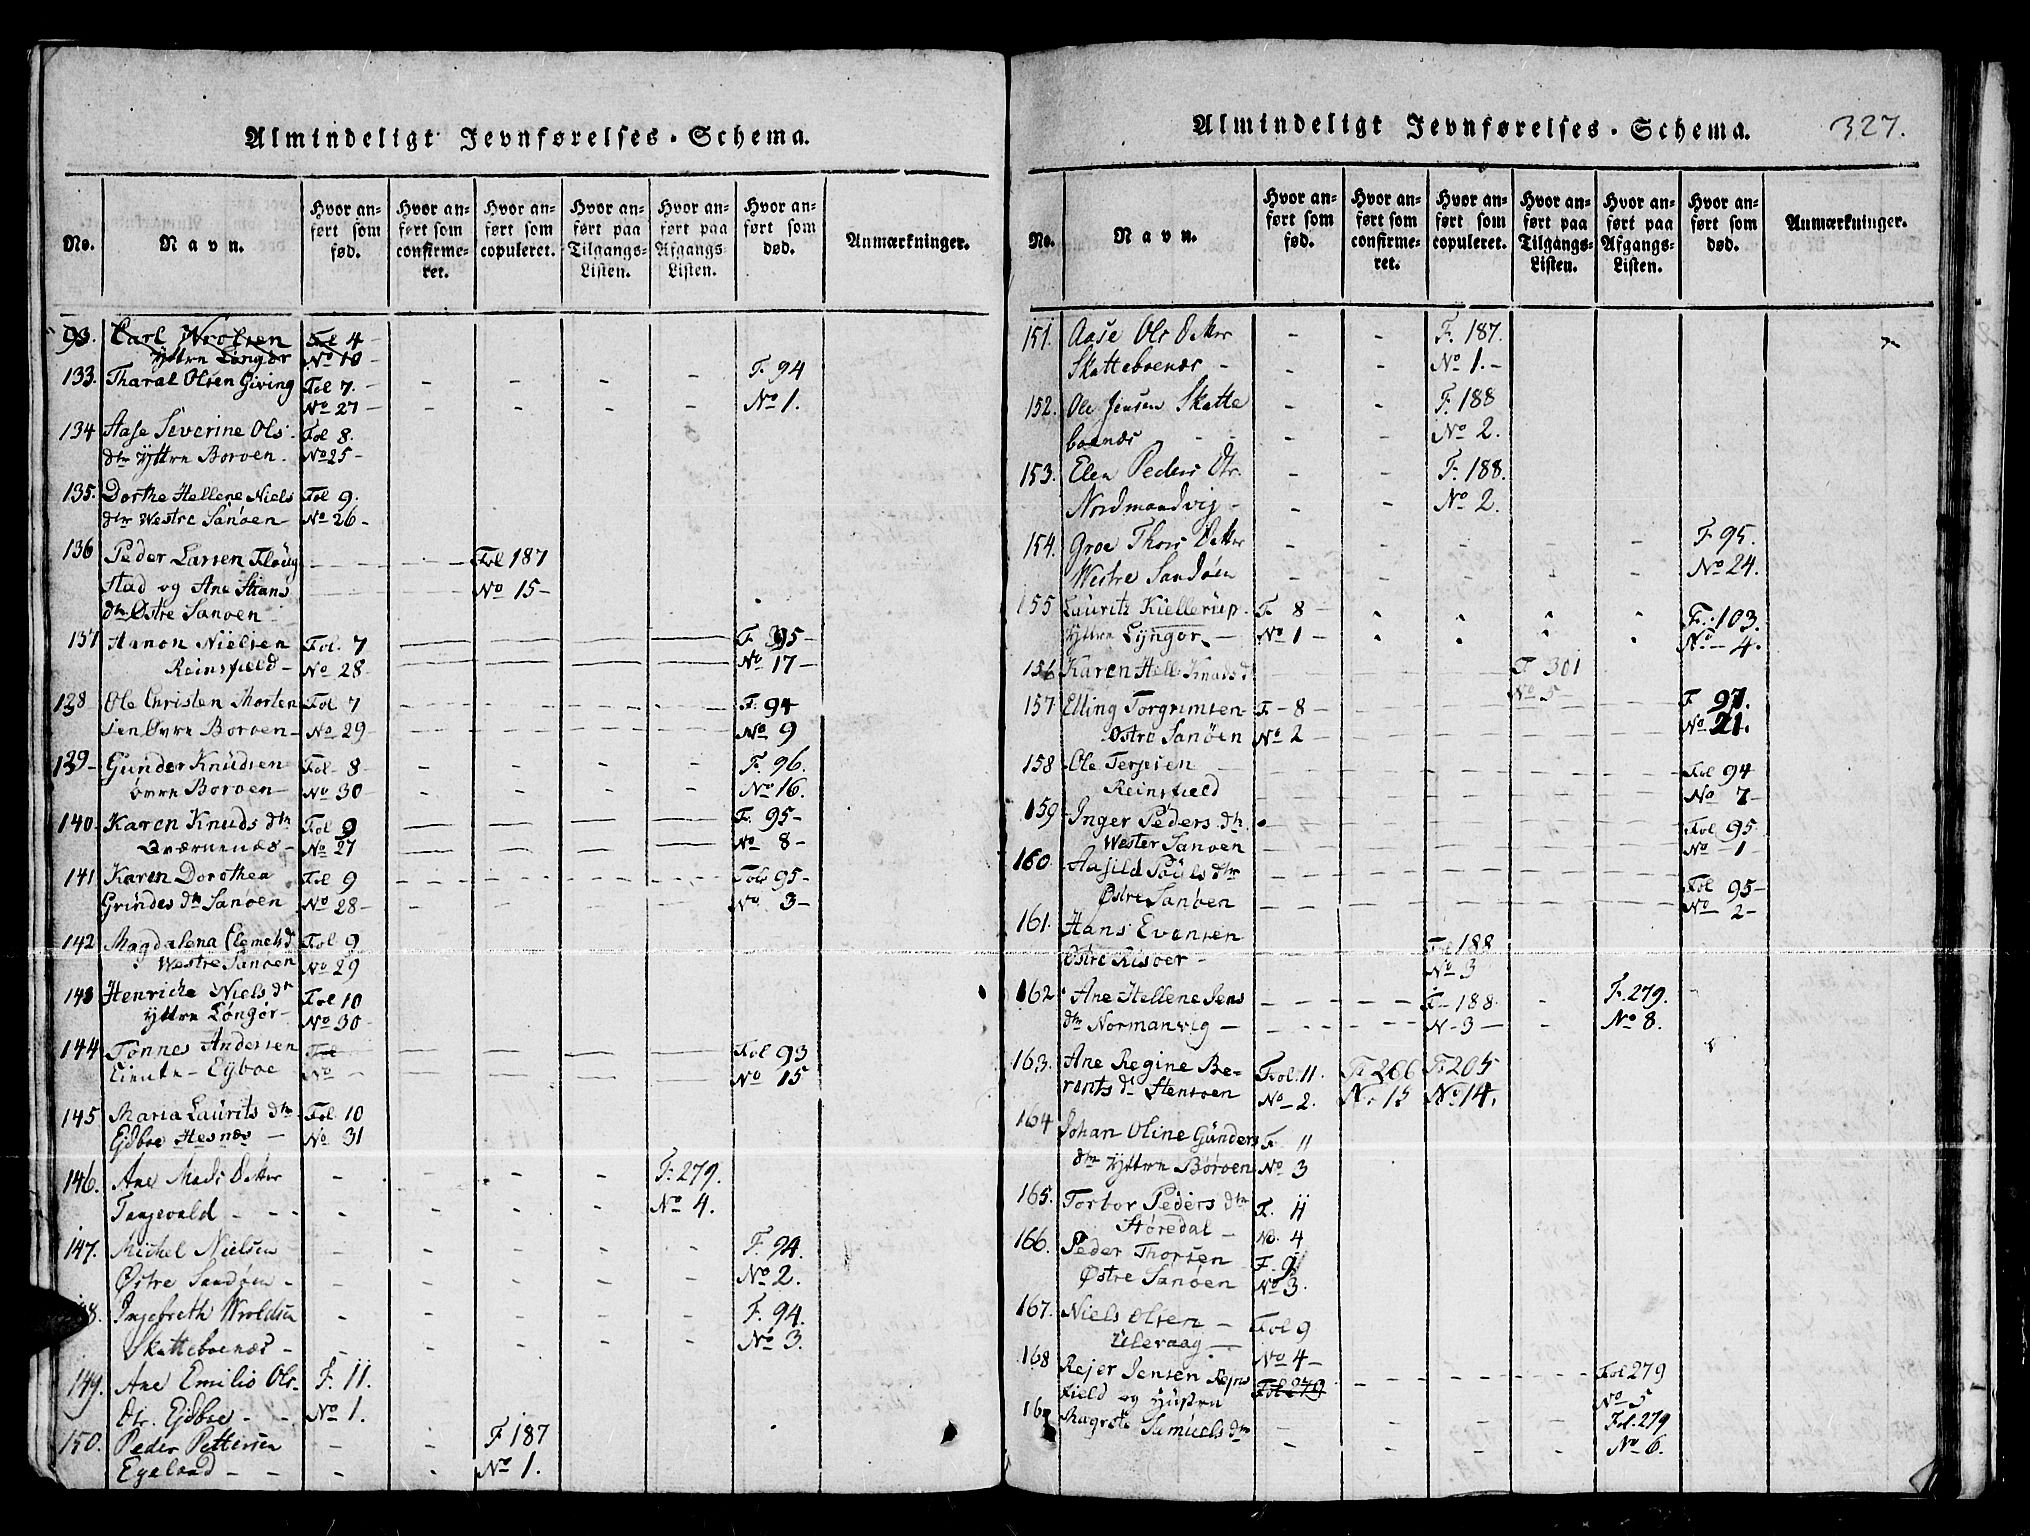 Almindeligt Jevnførelses-Schema.
No.
Navn.
Hvor an-
ført som
fød.
Hvor an-
ført som
confirme-
ret.
Hvor an-
ført som
copuleret.
Hvor an-
ført paa
Tilgangs-
Listen.
Hvor an-
ført paa
Afgangs-
Listen.
Hvor an-
ført som
død.
Anmærkninger.
93. Carl Wrolsen Fol 4 -
Yttre Lyngør No 10 -
133. Tharal Olsen Giving Fol 7. - - - - - - F. 94
No 27 - - - - - - No 1.
134 Aase Severine Ols Fol 8.
dtr Yttre Borøen. No 25 -
135. Dorthe Hellene Niels Fol 9.
dtr Westre Sanøen - No 26 -
136 Peder Larsen Fløug - - - - Fol 187
stad og Ane Stians - - - - No 15 -
dtr Østre Sanøen
137 Hanon Nielsen Fol. 7 - - - - F. 95 -
Reinsfield - No 28 - - - - No 17 -
138 Ole Christen Morten Fol 7 - - - - F. 94
sen Øvre Borøen - No 29 - - - - No 9
139 - Gunder Knudsen Fol - 8 - - - - - F. 96.
Øvre Borøen - No 30 - - - - - No 16.
140 - Karen Knuds dtr Fol 9 - - - - F. 95 -
Qværnenes - No 27 - - - - No 8 -
141 Karen Dorothea Fol 9 - - - - Fol 95 -
Grindes dtr Sanøen No 28 - - - - No 3 -
142 Magdalena Clemetsd Fol 9
Westre Sanøen No 29
143 Henriche Niels dtr Fol 10
Yttre Løngør - No 30 -
144 Tønnes Andersen Fol - - - - - Fol 93
- Eÿboe No - - - - - No 15
145 Maria Laurits dtr Fol 10
Ejdboe Hesnæs - No 31
146. Ane Mads Detter - - - - F. 279.
Tangevald - - - - - - - No 4.
147. Michel Nielsen - - - - - F. 94.
Østre Sandøen - - - - - - No 2.
Ingebreth Wroldsen - - - - - F. 94.
Skatteboenæs - - - - - - No 3.
149. Ane Emilie Ols - F. 11.
Dtr. Ejdboe - - No 1.
150. Peder Pettersen - - F 187
Egeland - - - - No 1.
Almindeligt Jevnførelses-Schema. 327.
No.
Navn.
Hvor an-
ført som
fød.
Hvor an-
ført som
confirme-
ret.
Hvor an-
ført som
copuleret.
Hvor an-
ført paa
Tilgangs-
Listen.
Hvor an-
ført paa
Afgangs-
Listen.
Hvor an-
ført som
død.
Anmærkninger.
151. Aase Ols Detter - - F. 187.
Skatteboenæs - - - No 1. -
152. Ole Jensen Skatte - - F. 188
boenæs - - - - No 2.
153. Elen Peders Dtr. - - F. 188.
Nordmandvig - - - No 2.
154. Groe Thors Detter - - - - - F. 95.
Westre Sandøen - - - - - No 24.
155 Lauritz Kiellerup. F. 8 - - - - - F. 103.
Yttre Lyngør - No 1 - - - - - No - 4.
156 Karen Hell Knudsd - - - F 301
No 5 -
157. Elling Torgrimsen F - 8 - - - - - F 97.
Østre Sanøen No 2 - - - - - No 21.
158 Ole Terjesen - - - - - Fol 94
Reinsfield No 7 -
159 Inger Peders dtr. - - - - - Fol 95
Wester Sanøen No 1 -
160. Aasild Pouls dtr - - - - - Fol 95 -
Østre Sanøen No 2 -
161. Hans Evensen - - Fol 188
Østre Risøer - No 3
162 Ane Hellene Jens - - F - 188 - F. 279.
dtr Normanvig - N - 3 - - No 8.
163. Ane Regine Be- Fol. 11. F. 266 F. 205
rents dtr Stensøen No - 2. No 15 No 14.
164 Johan Oline Günders F. 11
dtr Yttre Børøen No 3
165. Torbor Peders dtr F. 11
Støredal - No. 4
166. Peder Thorsen F. 9
Østre Sanøen No 3.
167. Niels Olsen - Fol 9
Uleraag - No 4 -
168 Rejer Jensen Rejns Fol 279 - - - Fol 279
field og Hustru No 5
Magrete Samuels dtr - - - - Fol. 279
No 6.